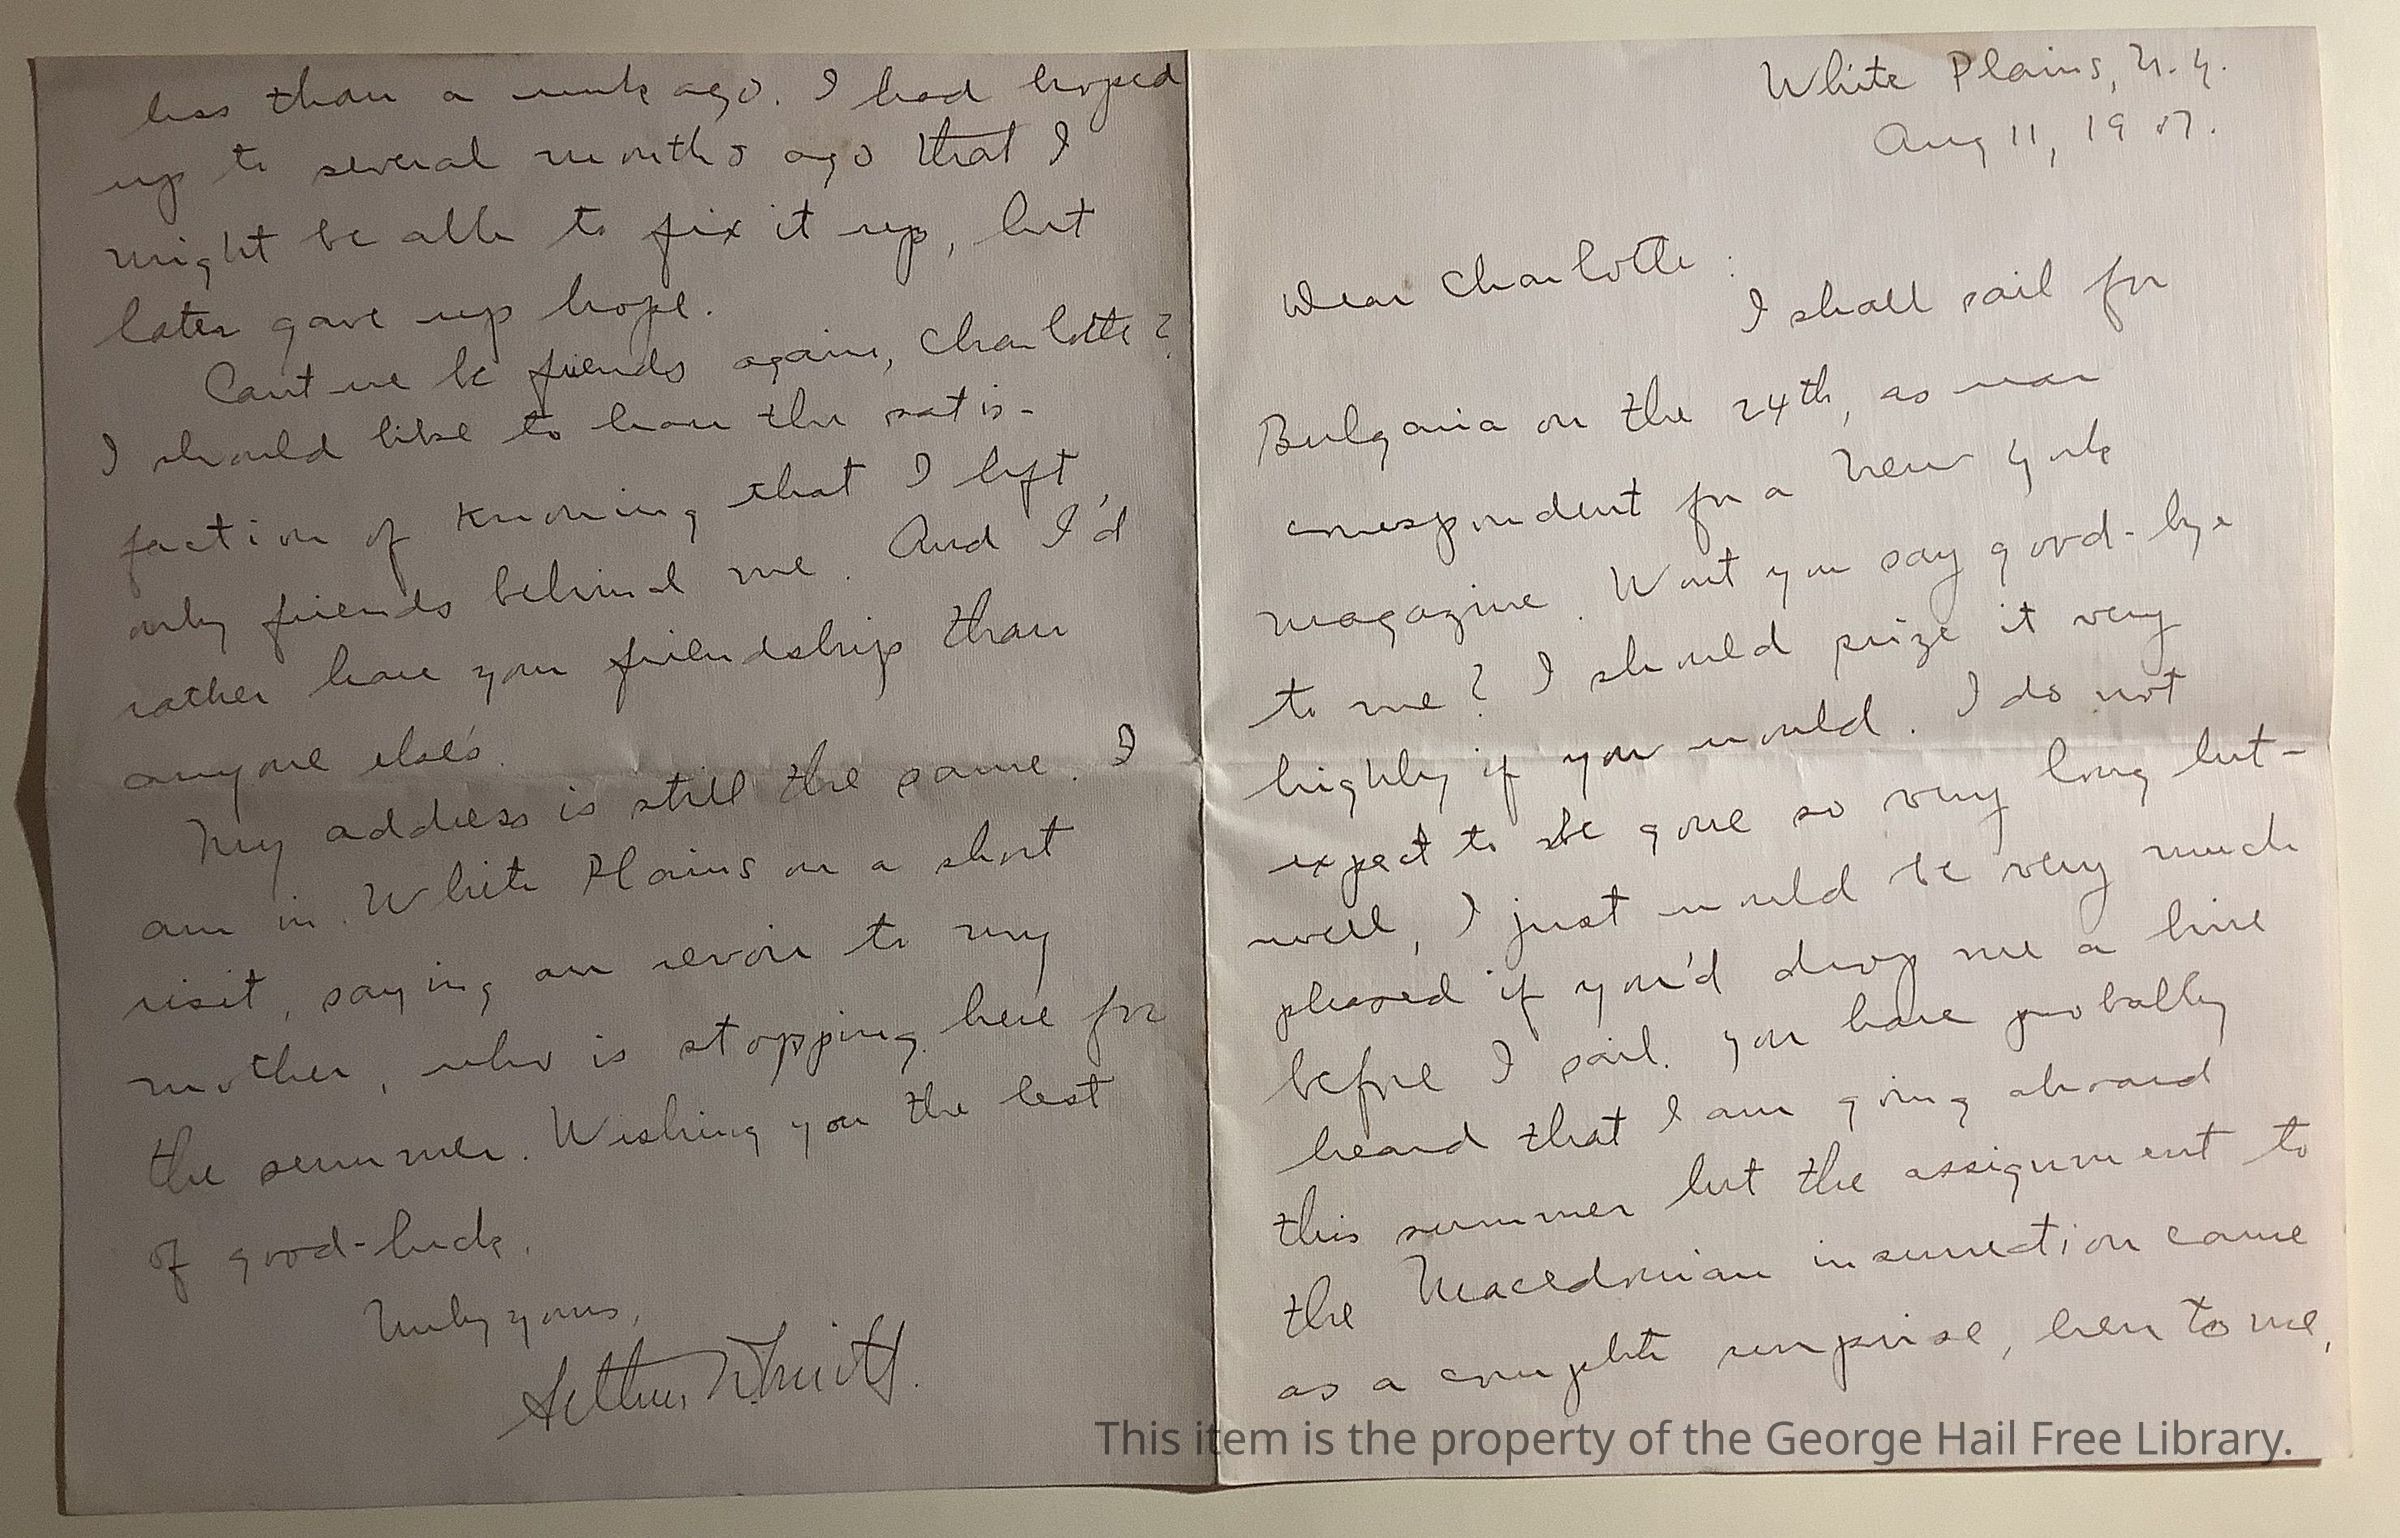 White Plains, N.Y.
Aug 11, 1907.
Dear Charlotte:
I shall sail for
Bulgaria on the 24th, as war
correspondent for a New York
magazine. Wont you say good-bye
to me? I should prize it very
highly if you would. I do not
expect to be gone so very long but-
well, I just would be very much
pleased if you'd drop me a line
before I sail. You have probably
heard that I am going abroad
this summer but the assignment to
the Macedonian insurrection came
as a complete surprise, even to me,
less than a week ago. I had hoped
up to several months ago that I
might be able to fix it up, but
later gave up hope.
Cant we be friends again, Charlotte?
I should like to have the satis-
faction of knowing that I left
only friends behind me. And I'd
rather have your friendship than
anyone else's.
My address is still the same. I
am in White Plains on a short
visit, saying au revoir to my
mother, who is stopping here for
the summer. Wishing you the best
of good-luck,
Truly yours,
Arthur
This item is the property of the George Hail Free Library.